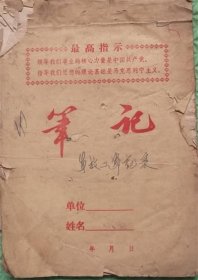 最高指示
领导我们事业的核心力量是中国共产党。
指导我们思想的理论基础是马克思列宁主义。
笔记
单位
姓名
年 月 日